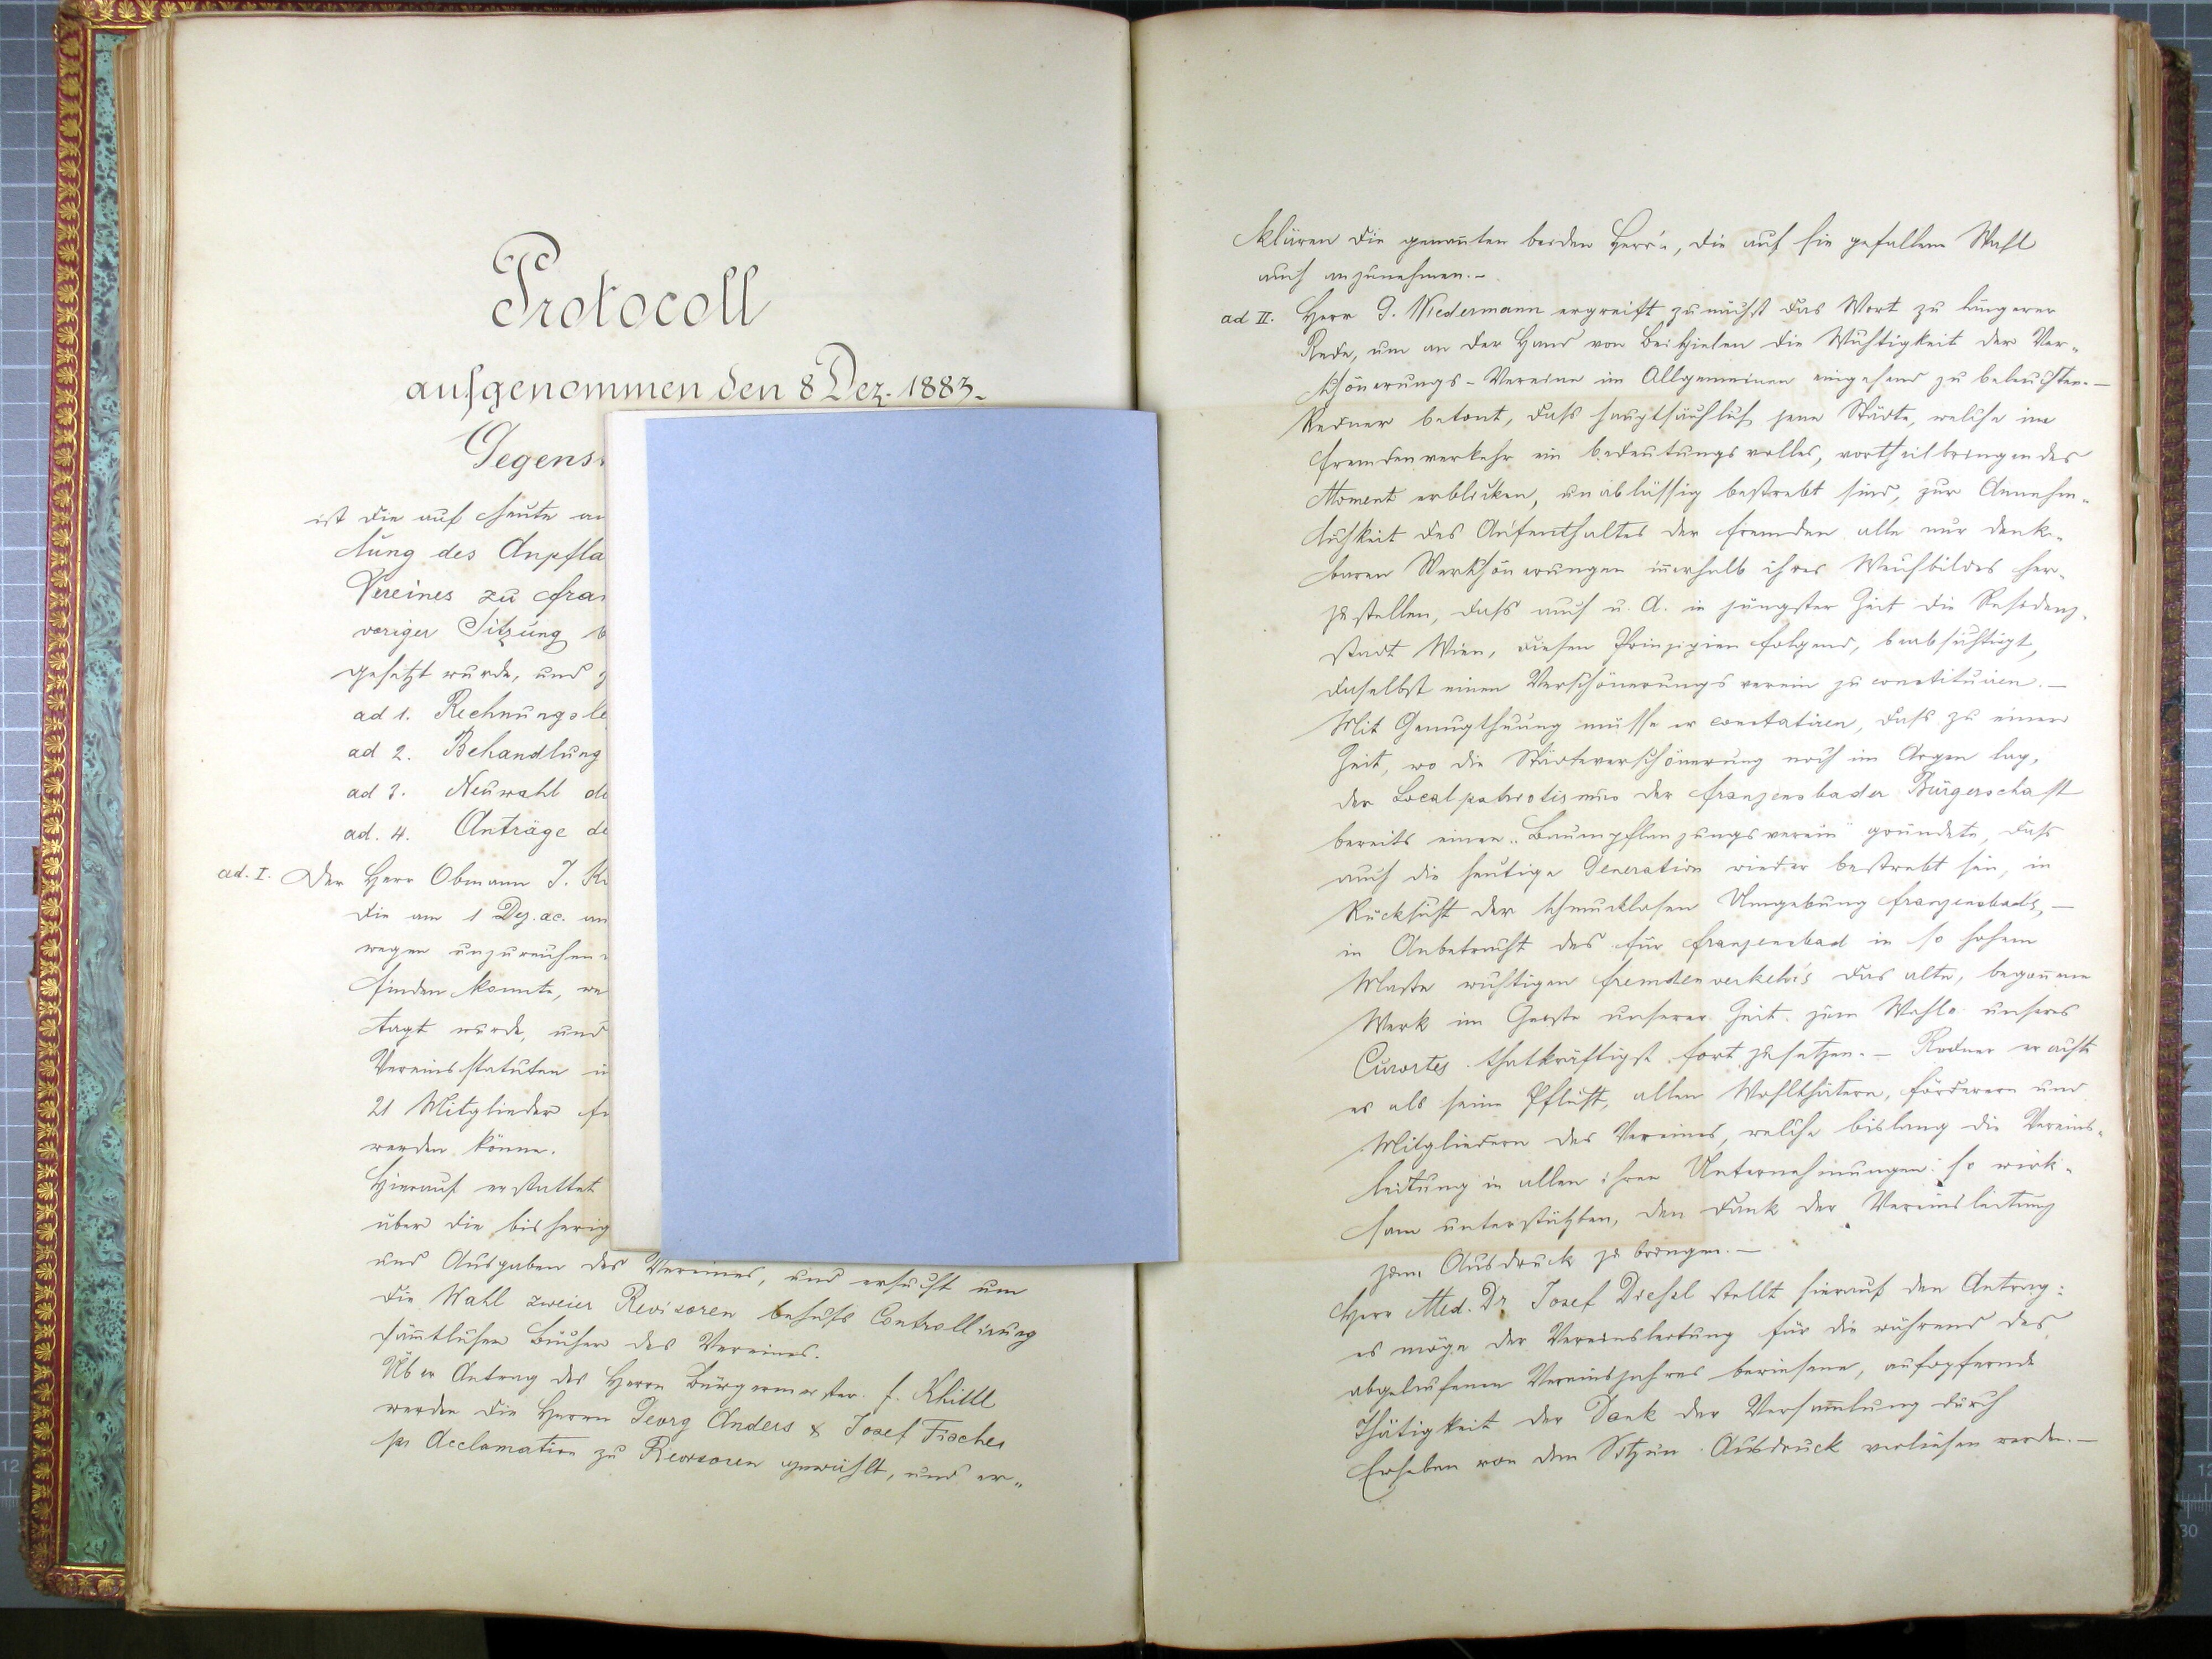 Protocoll
aufgenommen den 8 Dez. 1883.
Gegens
ist die auf heute an
lung des Anpfla
Vereines zu Fran
voriger Sitzung b
gesetzt wurde, und z
ad 1. Rechnungsle
ad 2. Behandlung
ad 3. Neuwahl de
ad. 4. Anträge de
ad. I. Der Herr Obmann J. K
die am 1 Dez. ac. an
wegen unzureichen
finden konnte, we
tagt wurde, und
Vereinsstatuten in
21 Mitglieder
werden könne.
Hierauf erstattet
über die bisherig
und Ausgaben des Vereines, und ersucht um
die Wahl zweier Revisoren behufs Controllirung
sämtlichen Bücher des Vereines.
Über Antrag des Herrn Bürgermeister F. Khittl
werden die Herren Georg Anders & Josef Fischer
per Acclamation zu Revisoren gewählt, und er„
klären die genannten beiden Herrn, die auf sie gefallene Wahl
auch anzunehmen.-
ad II. Herr G. Wiedermann ergreift zunächst das Wort zu längerer
Rede, um an der Hand von Beispielen die Wichtigkeit der Ver„
schönerungs-Vereine im Allgemeinen eingehend zu beleuchten.-
Redner betont, dass hauptsächlich jene Städte, welche im
Fremdenverkehr ein bedeutungsvolles, vortheilbringendes
Moment erblicken, unablässig bestrebt sind, zur Annehm„
lichkeit des Aufenthaltes der Fremden alle nur denk„
baren Verschönerungen innerhalb ihres Weichbildes her„
zustellen, dass auch u. A. in jüngster Zeit die Residenz„
stadt Wien, diesen Prinzipien folgend, beabsichtigt,
daselbst einen Verschönerungsverein zu constituiren.-
Mit Genugthuung müsse er constatiren, dass zu einer
Zeit, wo die Städteverschönerung noch im Argen lag,
der Localpatriotismus der Franzensbader Bürgerschaft
bereits einen „Baumpflanzungsverein" gründete, dass
auch die heutige Generation wieder bestrebt sei, in
Rücksicht der schmucklosen Umgebung Franzensbads,-
in Anbetracht des für Franzensbad in so hohem
Maße wichtigen Fremdenverkehrs das alte, begonnene
Werk im Geiste unserer Zeit zum Wohle unseres
Curortes thatkräftigst fortzusetzen.- Redner erachte
es als seine Pflicht, allen Wohlthätern, Förderern und
Mitgliedern des Vereines, welche bislang die Vereins„
leitung in allen ihren Unternehmungen so wirk„
sam unterstützten, den Dank der Vereinsleitung
zum Ausdruck zu bringen.-
Herr Med. Dr. Josef Diessl stellt hierauf den Antrag:
es möge der Vereinsleitung für die während des
abgelaufenen Vereinsjahres bewiesene, aufopfernde
Thätigkeit der Dank der Versammlung durch
Erheben von den Sitzen Ausdruck verliehen werden.-